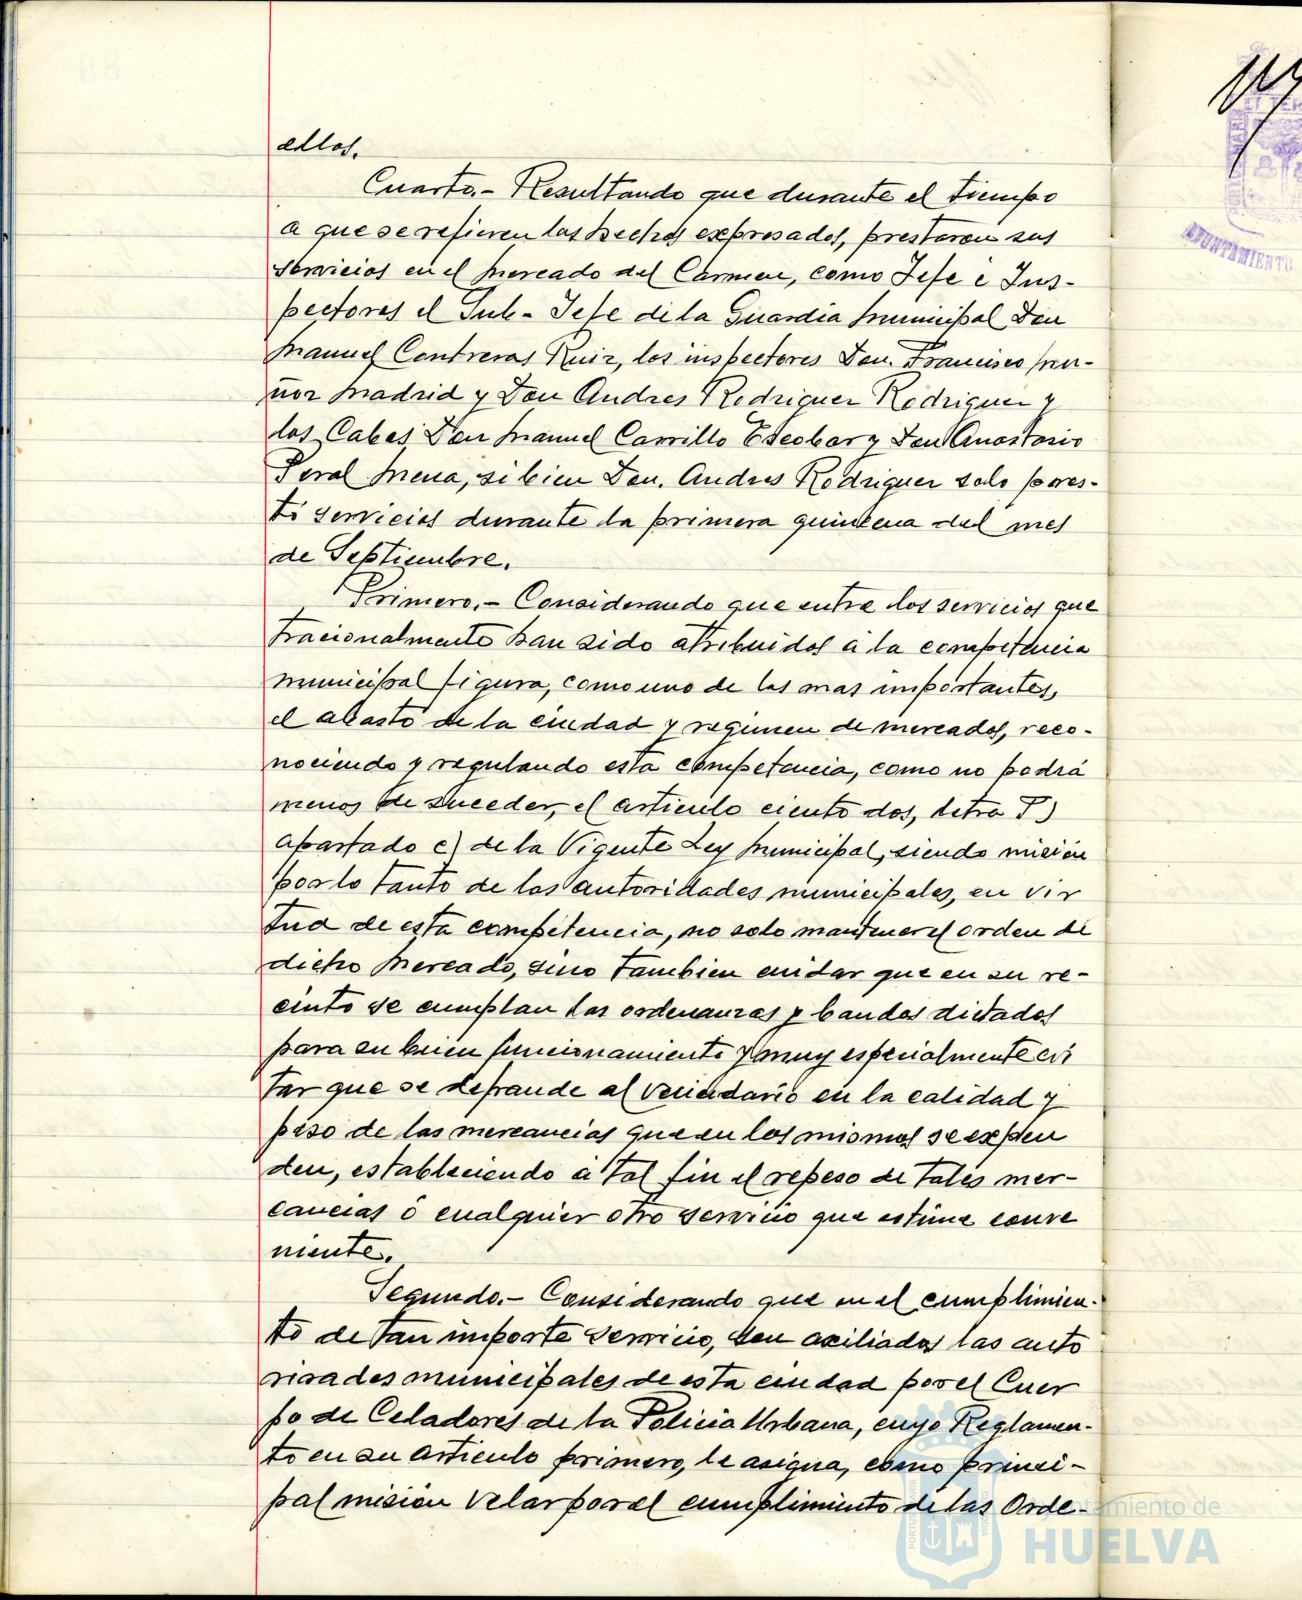 ellos.
Cuarto.- Resultando que durante el tiempo
a que se refieren los hechos expresados, prestaron sus
servicios en el mercado del Carmen, como Jefe é Ins-
pectores el Sub-Jefe de la Guardia Municipal Don
Manuel Contreras Ruiz, los inspectores Don. Francisco Mu-
ñoz Madrid y Don Andres Rodriguez Rodriguez y
los Cabos Don Manuel Carrillo Escobar y Don Anastasio
Peral Mena, si bien Don. Andres Rodriguez solo pres-
tó servicios durante la primera quincena del mes
de Septiembre.
Primero.- Considerando que entre los servicios que
tracionalmente han sido atribuidos á la competencia
municipal figura, como uno de los mas importantes,
el abasto de la ciudad y regimen de mercados, reco-
nociendo y regulando esta competencia, como no podrá
menos de suceder, el articulo ciento dos, letra T)
apartado c) de la Vigente Ley Municipal, siendo misión
por lo tanto de las autoridades municipales, en vir
tud de esta competencia, no solo mantener el orden de
dicho Mercado, sino tambien cuidar que en su re-
cinto se cumplan las ordenanzas y bandos dictados
para su buen funcionamiento y muy especialmente evi
tar que se defraude al vecindario en la calidad y
peso de las mercancias que en los mismos se expen
den, estableciendo á tal fin el repeso de tales mer-
cancias ó cualquier otro servicio que estime conve
niente.
Segundo.- Considerando que en el cumplimien-
to de tan importe servicio, son axiliados las auto
ridades municipales de esta ciudad por el Cuer
po de Celadores de la Policia Urbana, cuyo Reglamen-
to en su articulo primero, le asigna, como princi-
pal misión velar por el cumplimiento de las Orde-
AYUNTAMIENTO
Ayuntamiento de
HUELVA